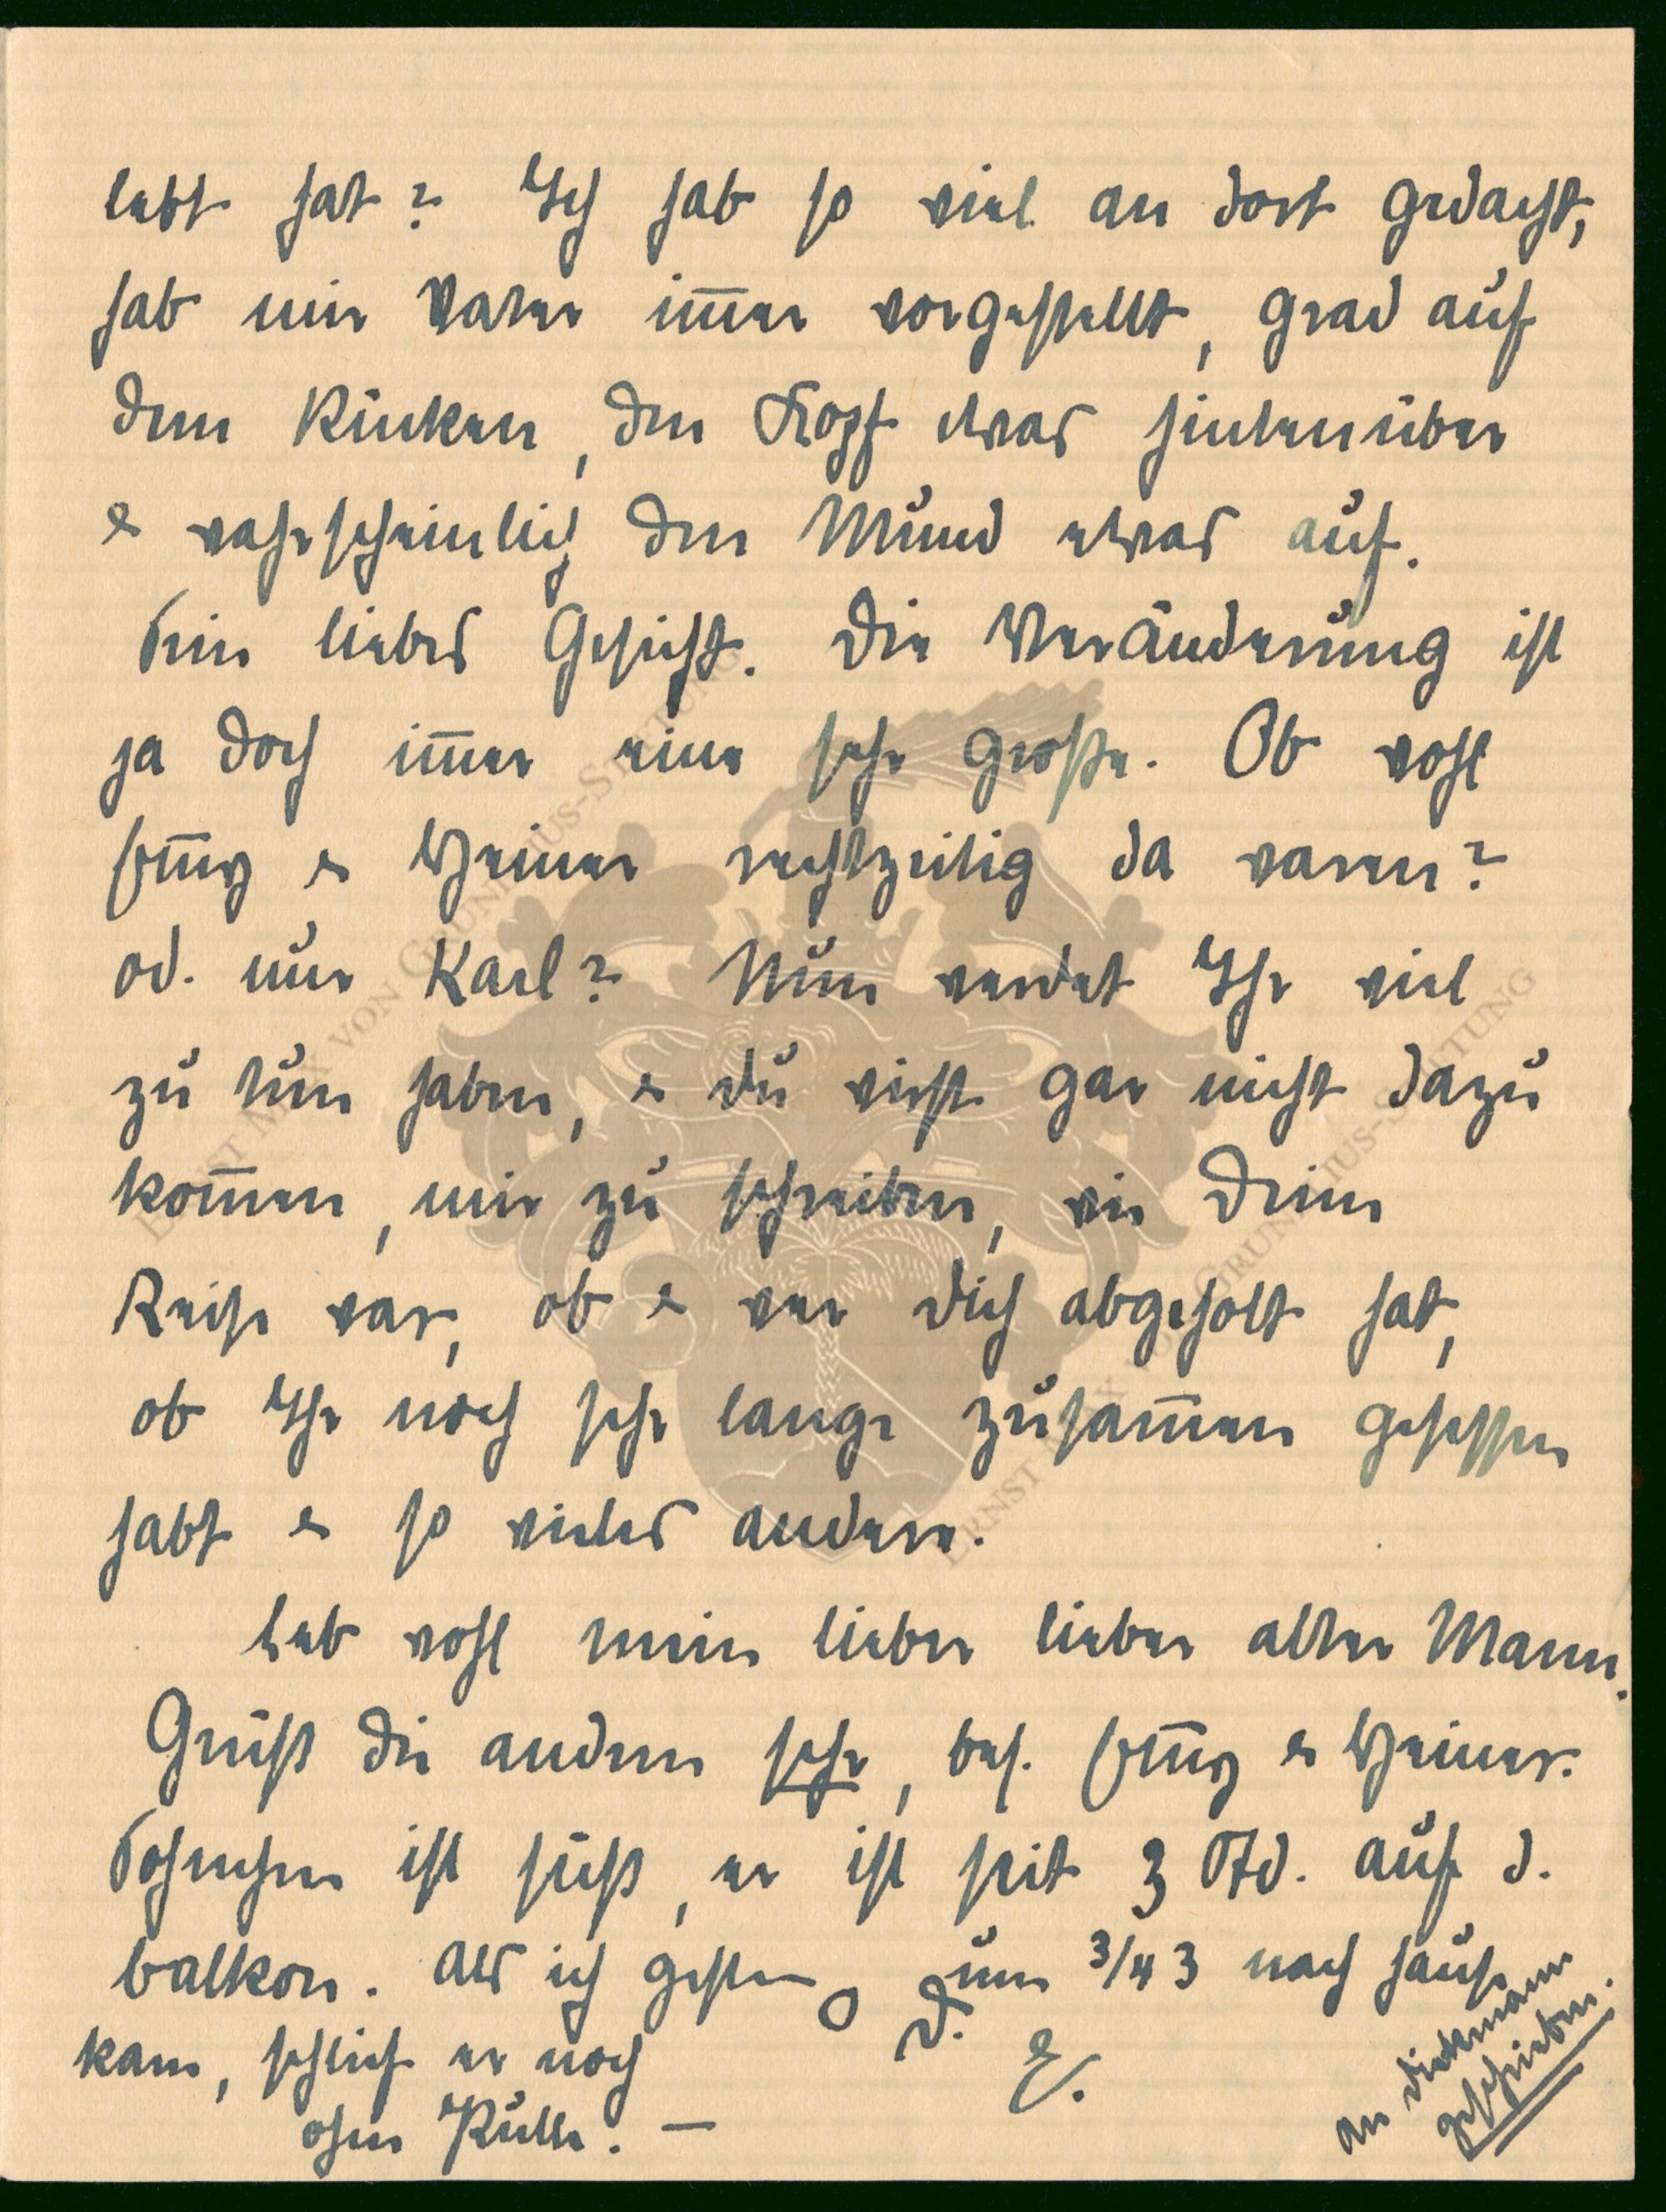 lebt hat? Ich hab so viel an dort gedacht,
hab mir Vater im̅er vorgestellt, grad auf
dem Rücken, den Kopf etwas hintenüber
& wahrscheinlich den Mund etwas auf.
Sein liebes Gesicht. Die Veränderung ist
ja doch im̅er eine sehr große. Ob wohl
Em̅y & Heiner rechtzeitig da waren?
od. nur Karl? Nun werdet Ihr viel
zu tun haben, & du wirst gar nicht dazu
kom̅en, mir zu schreiben, wie Deine
Reise war, ob & wer dich abgeholt hat,
ob Ihr noch sehr lange zusam̅en gesessen
habt & so vieles andere.
Leb wohl mein lieber lieber alter Mann.
Grüß die andern sehr, bes. Em̅y & Heiner.
Söhnchen ist süß, er ist seit 3 Std. auf d.
balkon. Als ich gestern um 3/4 3 nach hause
kam, schlief er noch
ohne
D.
E.
An Diekmann
geschrieben.
ERNST MAX VON GRUNELIUS-STIFTUNG
ERNST MAX VON GRUNELIUS-STIFTUNG